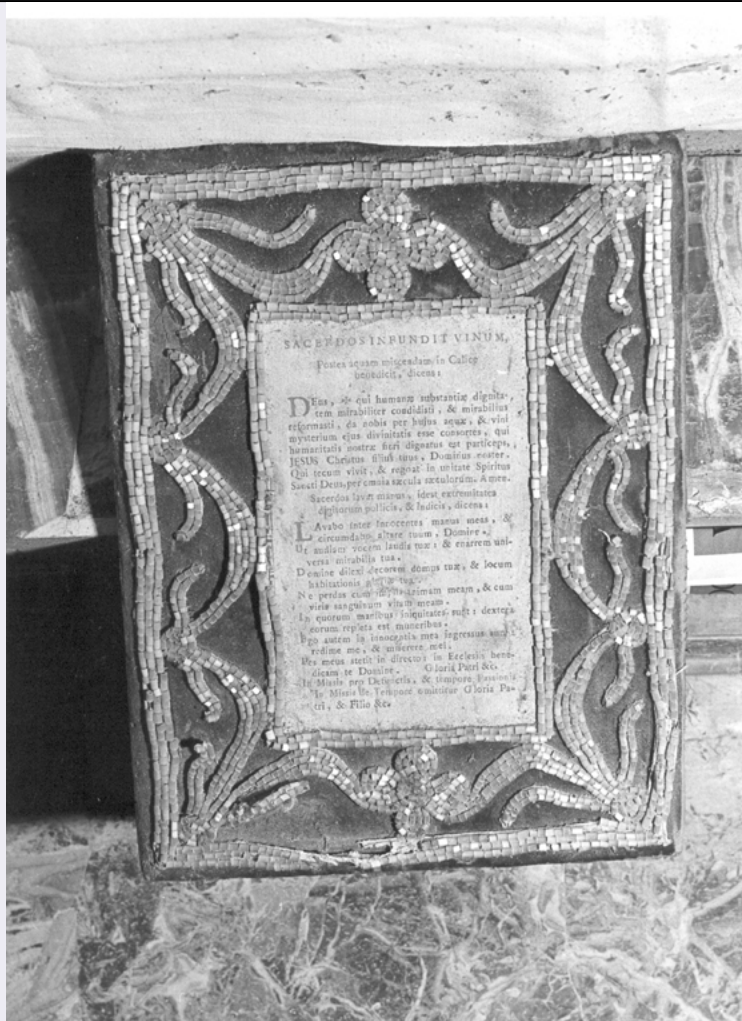 SACERDOS INFUNDIT VINUM,
Postea aquam miscendam in Calice
benedicit, dicens:
DEus, ✠ qui humanæ substantiæ dignita-
tem mirabiliter condidisti, & mirabilius
reformasti, da nobis per hujus aquæ, & vini
mysterium ejus divinitatis esse consortes, qui
humanitatis nostræ fieri dignatus est particeps,
JESUS Christus filius tuus, Dominus noster.
Qui tecum vivit, & regnat in unitate Spiritus
Sancti Deus, per omnia sæcula sæculorum. Amen.
Sacerdos lavat manus, idest extremitates
digitorum pollicis, & Indicis, dicens:
LAvabo inter innocentes manus meas, &
circumdabo altare tuum, Domine.
Ut audiam vocem laudis tuæ: & enarrem uni-
versa mirabilia tua.
Domine dilexi decorem domus tuæ, & locum
habitationis
Ne perdas cum animam meam, & cum
viris sanguinum vitam meam.
In quorum manibus iniquitates sunt: dextera
eorum repleta est muneribus.
Ego autem in innocentia mea ingressus sum:
redime me, & miserere mei.
Pes meus stetit in directo: in Ecclesiis bene-
dicam te Domine. Gloria Patri &c.
In Missis pro Defunctis, & tempore Passionis
In Missis de Tempore omittitur Gloria Pa-
tri, & Filio &c.